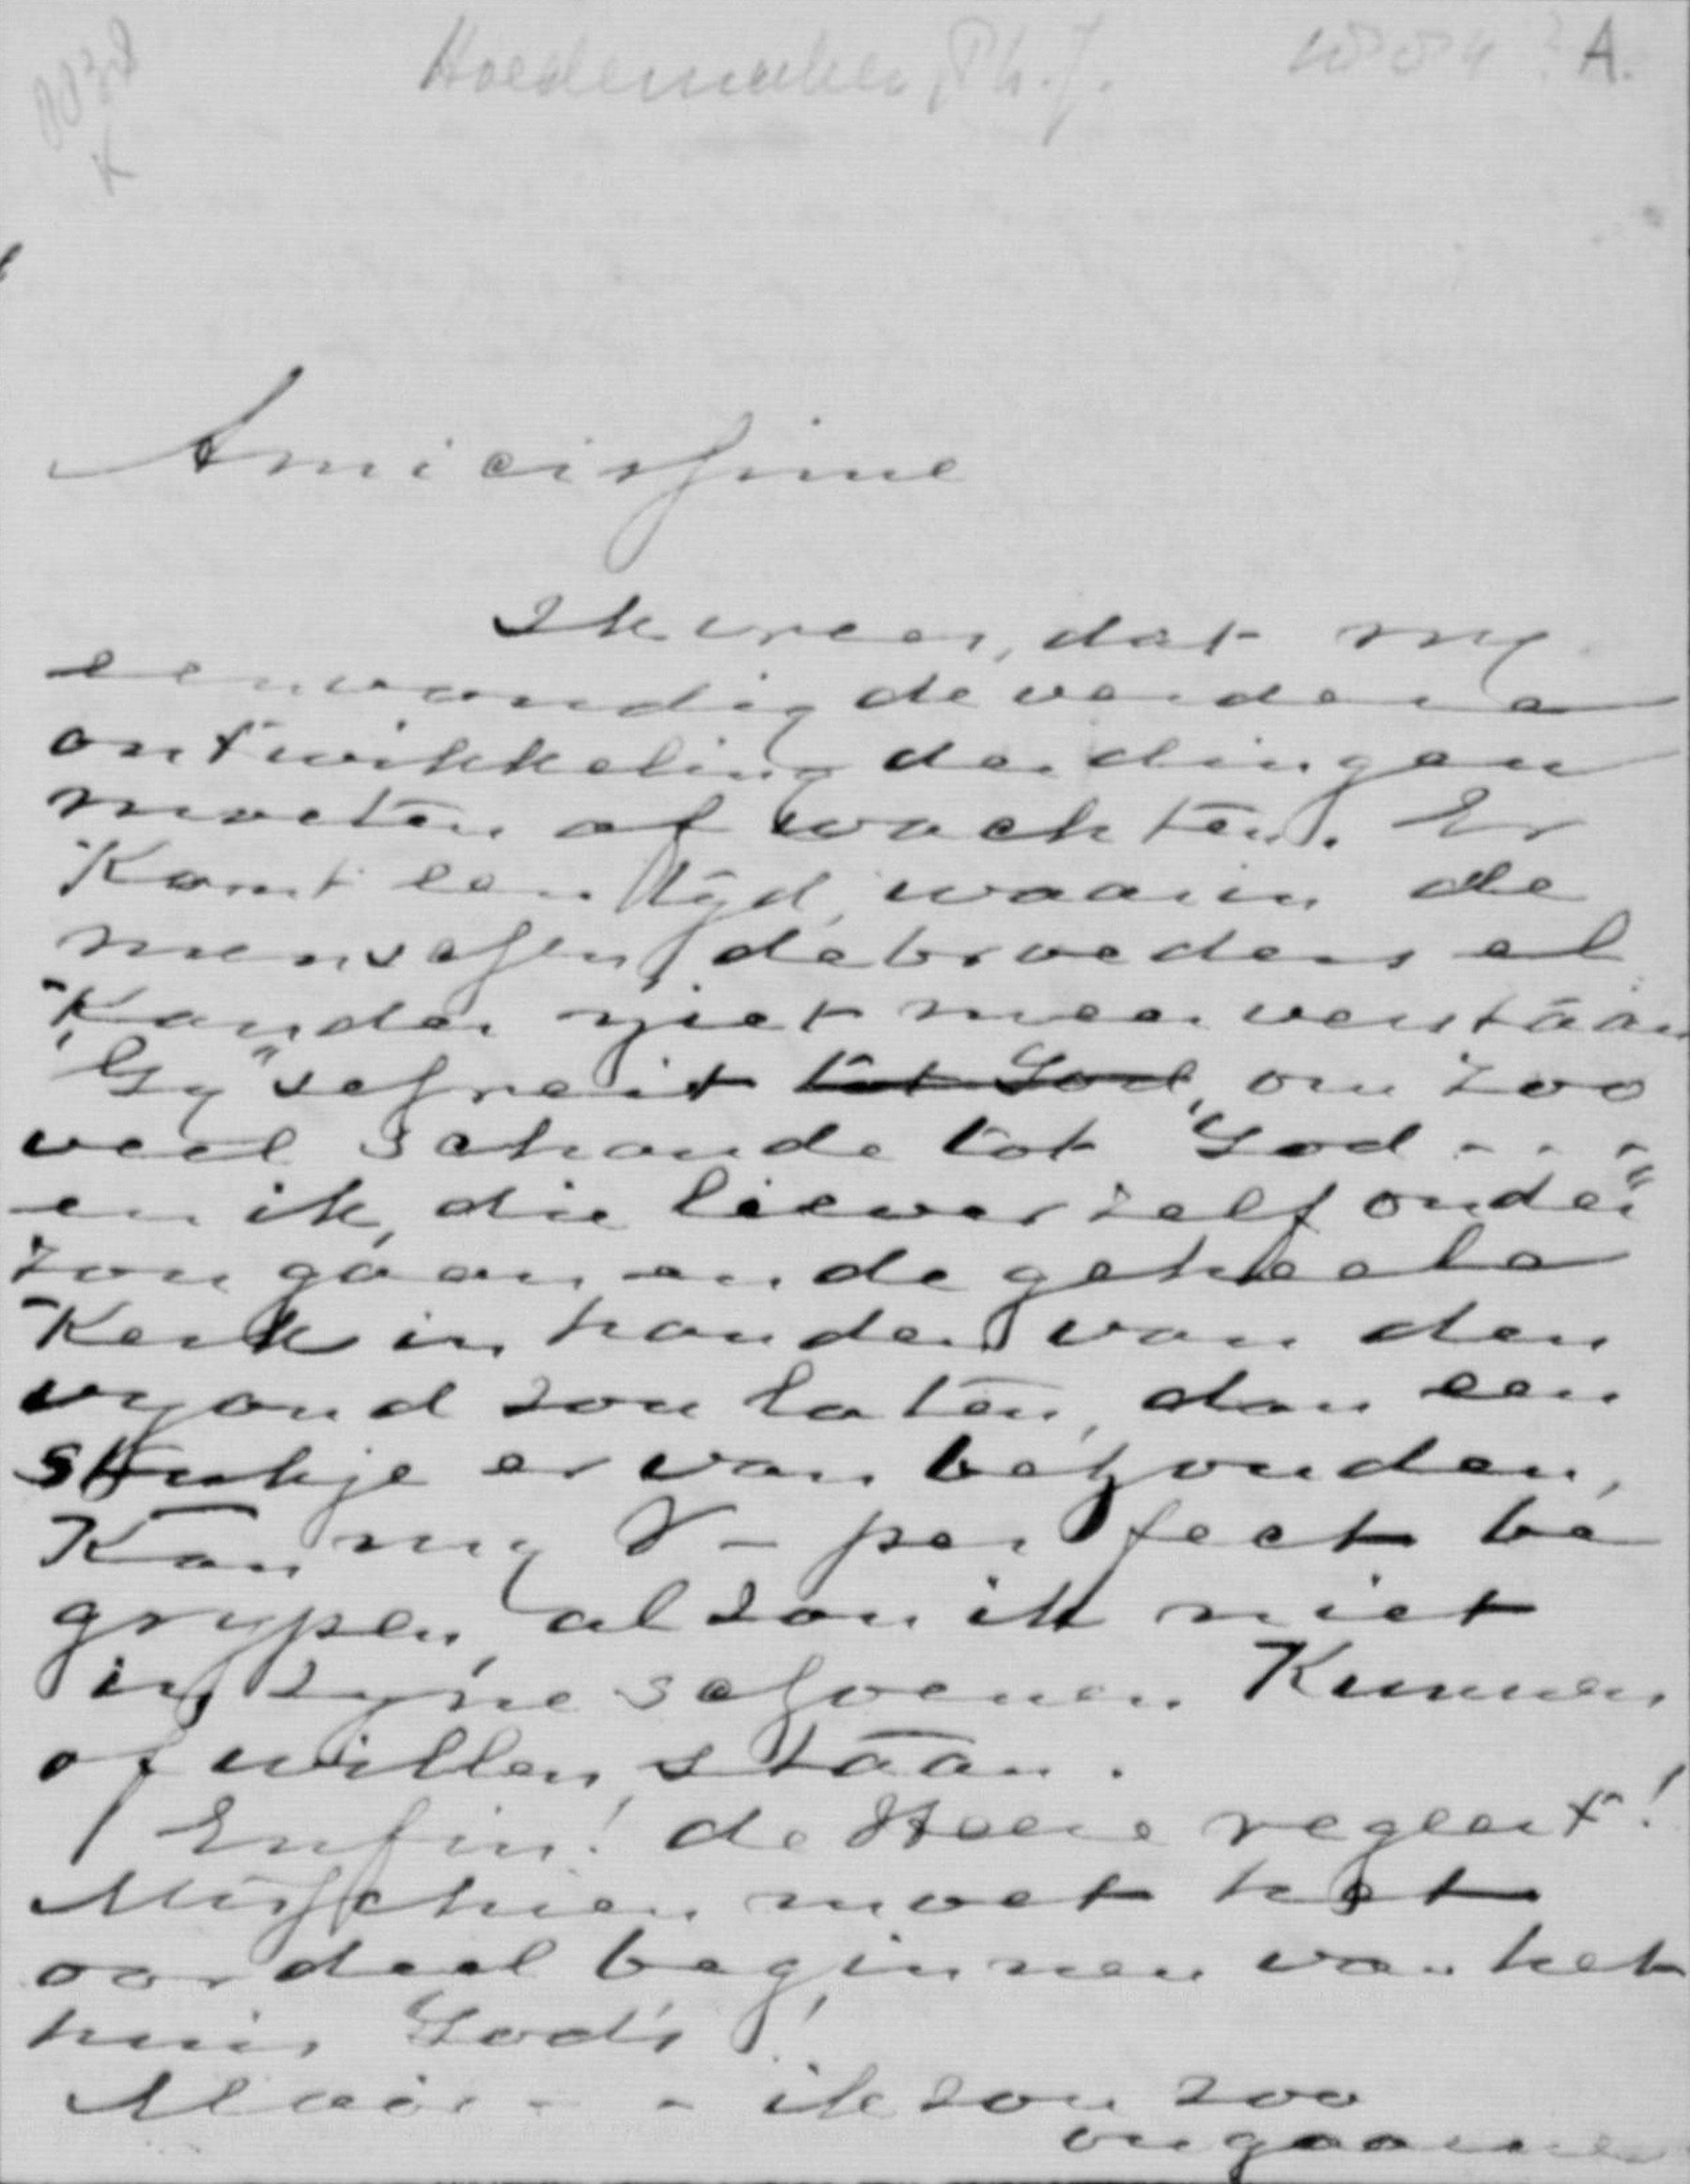 0038
K
Hoedemaker, Ph. J.
A.
Amicissime
Ik vrees, dat wy
eenvoudig de verdere
ontwikkeling der dingen
moeten afwachten. Er
Komt een tyd, waarin de
menschen, de broeders el
Kander niet meer verstaan
"Gy" schreit tot God, om zoo
veel schande tot God - - -
en ik, die liever zelf onder
zou gaan en de geheele
Kerk in handen van den
vyand zou laten, dan een
stukje er van behouden,
Kan my V- perfect be
grypen, al zou ik niet
in zyne schoenen Kunnen
of willen staan.
Enfin! de Heere regeert!
Misschien moet het
oordeel beginnen van het
huis Gods!
Maar - - ik zou zoo
ongaarne